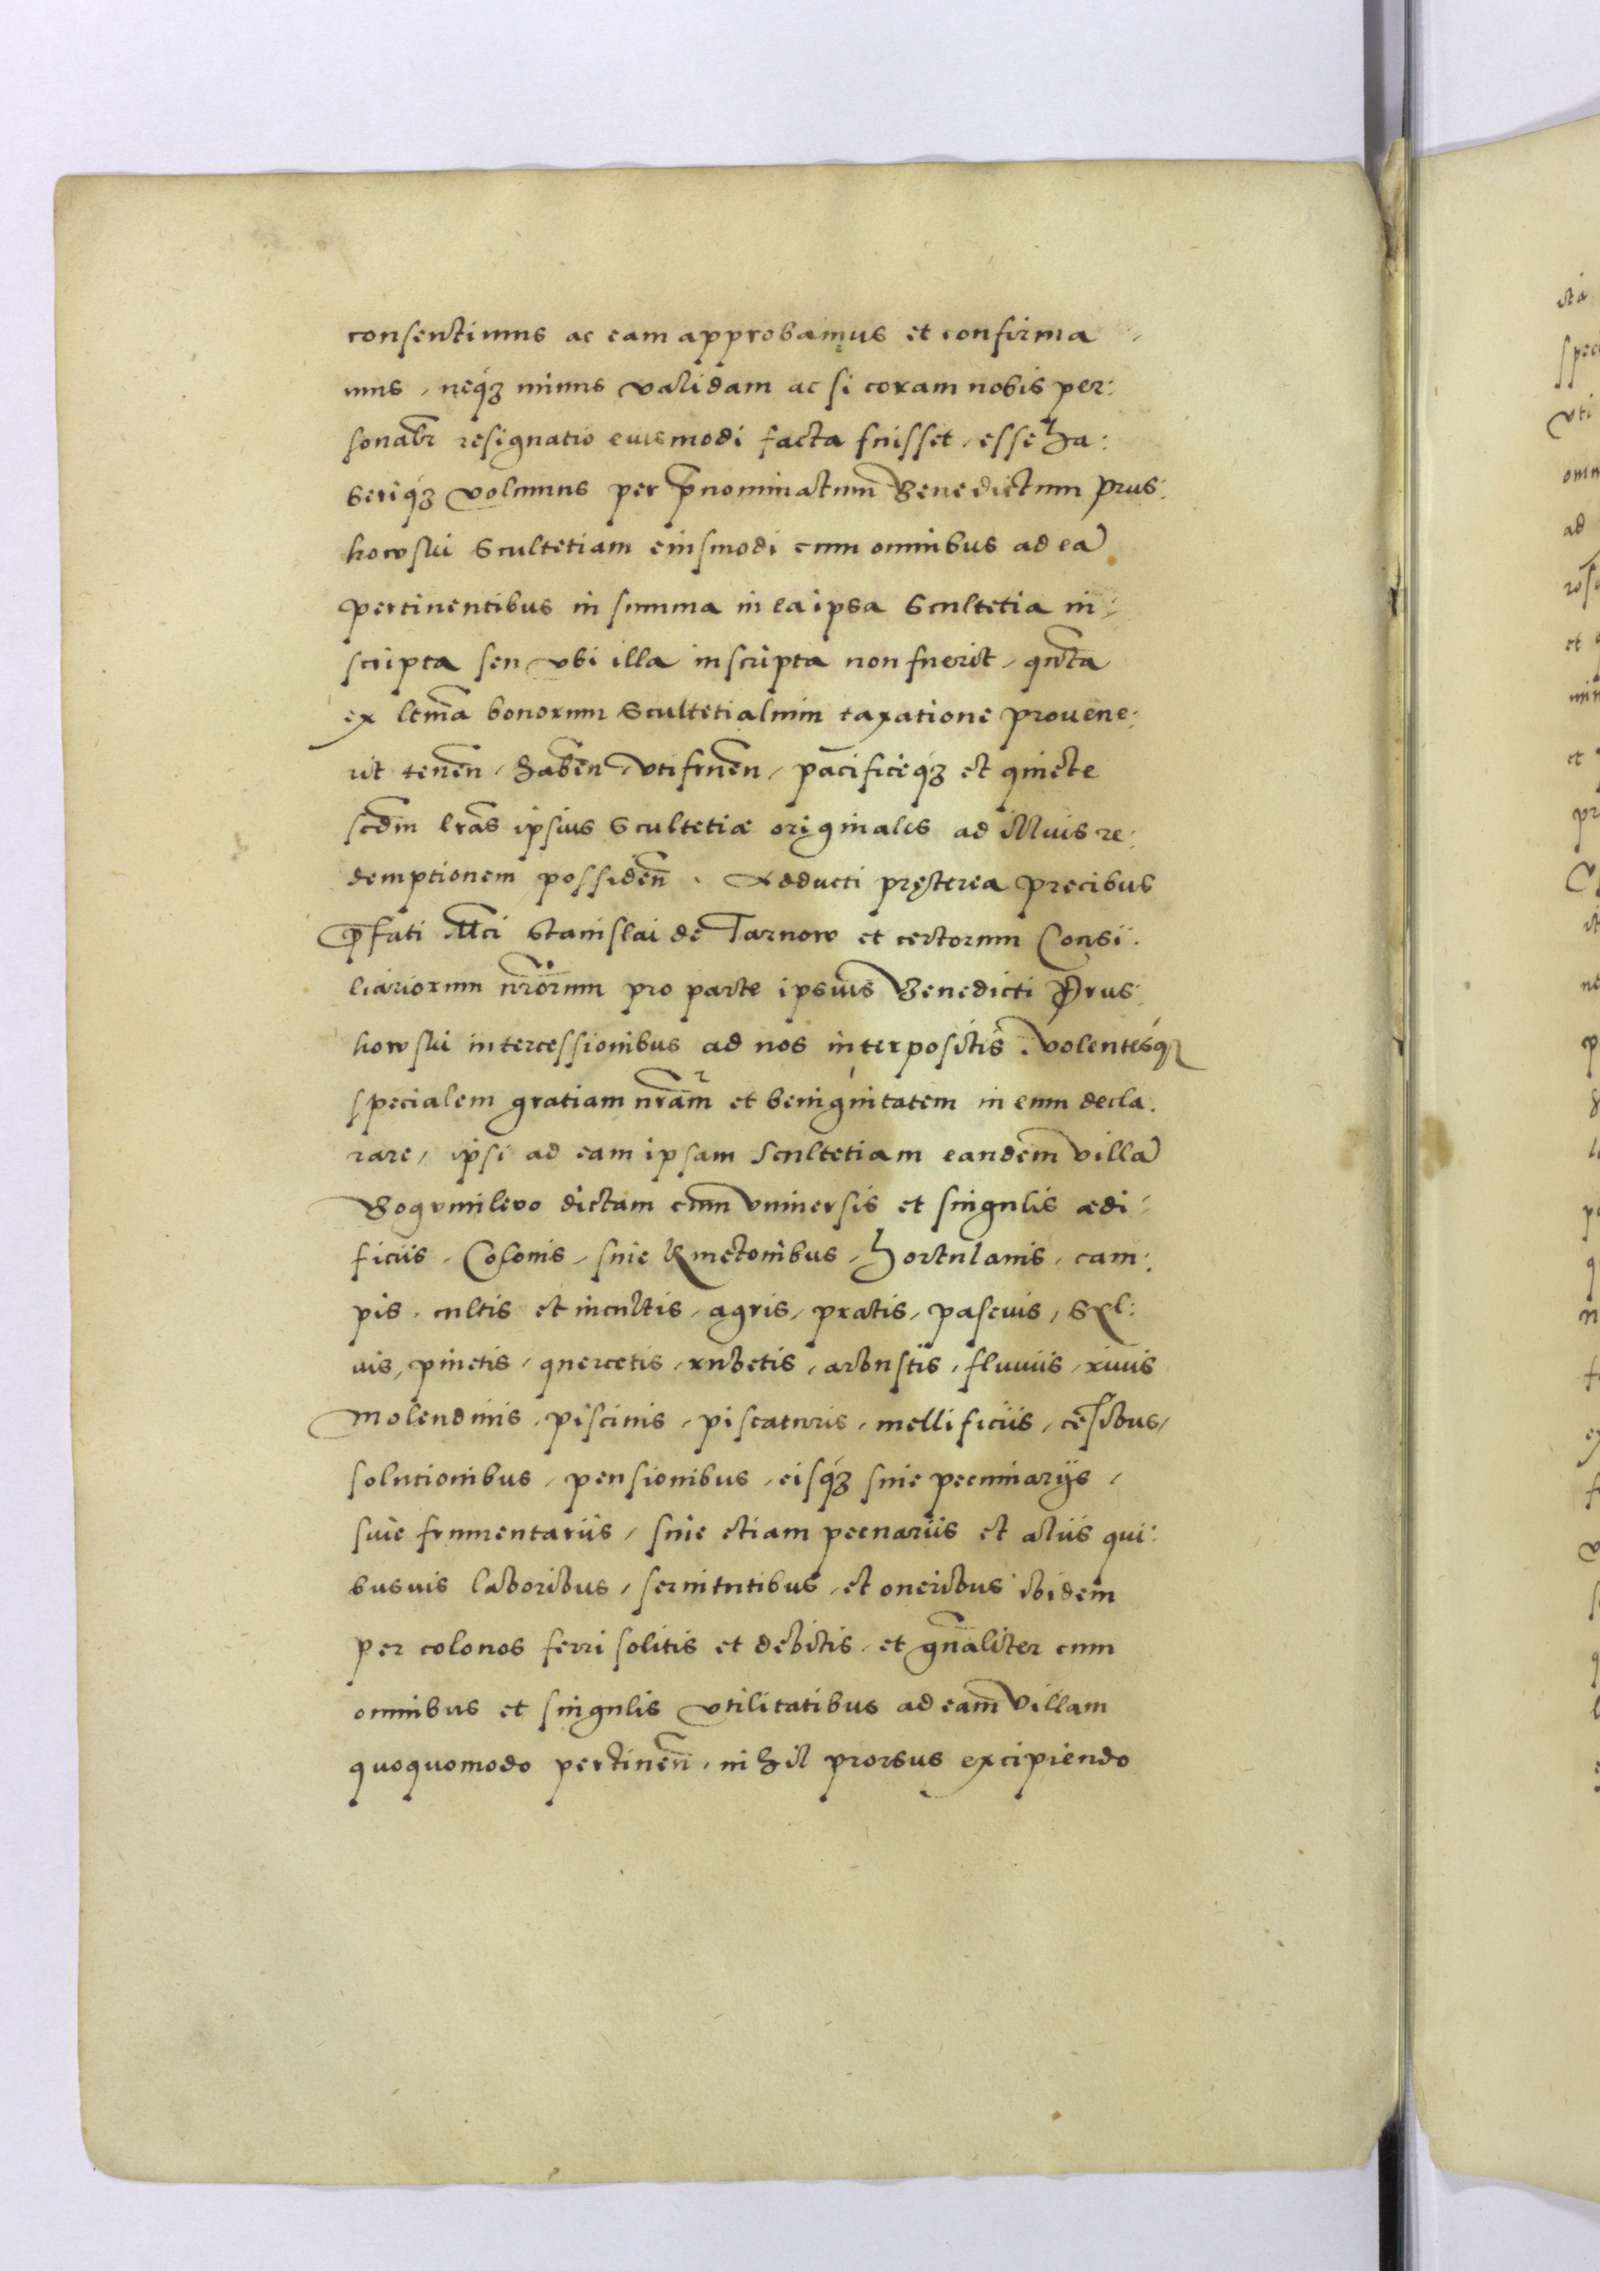 consentimus ac eam approbamus et confirma
mus, neq́ʒ minus validam ac si coram nobis per:
sonalr̃ resignatio euismodi facta fuisset, esse ha:
beriq́ʒ volumus per p̃nominatum Benedictum Prus:
kowski Scultetiam eiusmodi cum omnibus ad eã
pertinentibus in summa in ea ipsa Scultetia in:
scripta seu vbi illa inscripta non fuerit, qũta
ex ltĩma bonorum Scultetialium taxatione prouene:
rit tenen̄, haben̄, vtifruen̄, pacificeq́ʒ et quiete
scd̃m lr̃as ipsius Scultetiæ originales ad illius re:
demptionem possiden̄. Adducti pręterea precibus
p̃fati M̃ci Stanislai de Tarnow et certorum Consi:
liariorum nr̃orum pro parte ipsius Benedicti Prus:
kowski intercessionibus ad nos interpositis. volentesq́ʒ
specialem gratiam nr̃am et benignitatem in eum decla:
rare, ipsi ad eam ipsam Scultetiam eandem villã
Bogumilevo dictam cum vniuersis et singulis ædi:
ficiis, Colonis, siue Kmetonibus, Hortulanis, cam:
pis, cultis et incultis, agris, pratis, pascuis, Syl:
uis, pinetis, quercetis, rubetis, arbustis, fluuiis, riuis
molendinis, piscinis, piscaturis, mellificiis, cẽsibus,
solutionibus, pensionibus, eisq́ʒ siue pecuniarijs,
siue frumentariis, siue etiam pecuariis et aliis qui:
busuis laboribus, seruitutibus, et oneribus ibidem
per colonos ferri solitis et debitis, et gñaliter cum
omnibus et singulis vtilitatibus ad eam villam
quoquomodo pertinen̄, nihil prorsus excipiendo